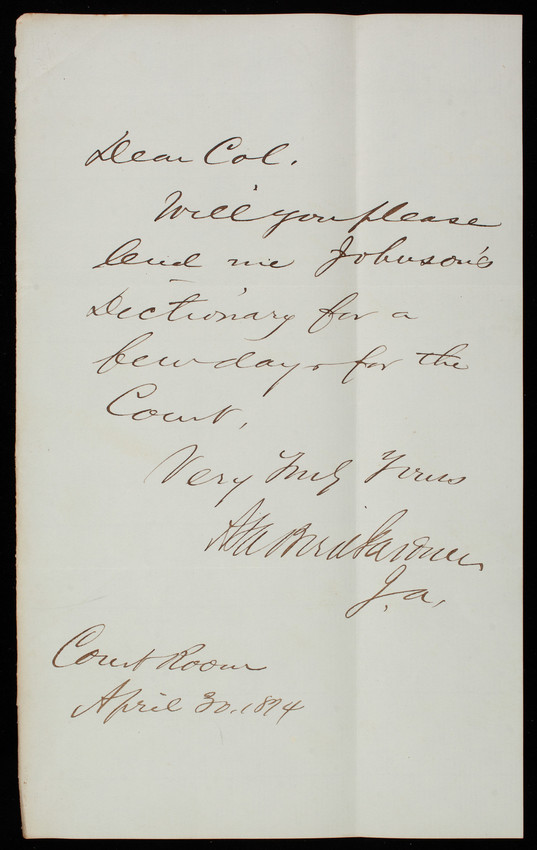 Dear Col.
Will you please
lend me Johnson's
Dictionary for a
few days for the
Court.
Very Truly Yours
Asa Bird Gardner
J. a.
Court Room
April 30. 1874